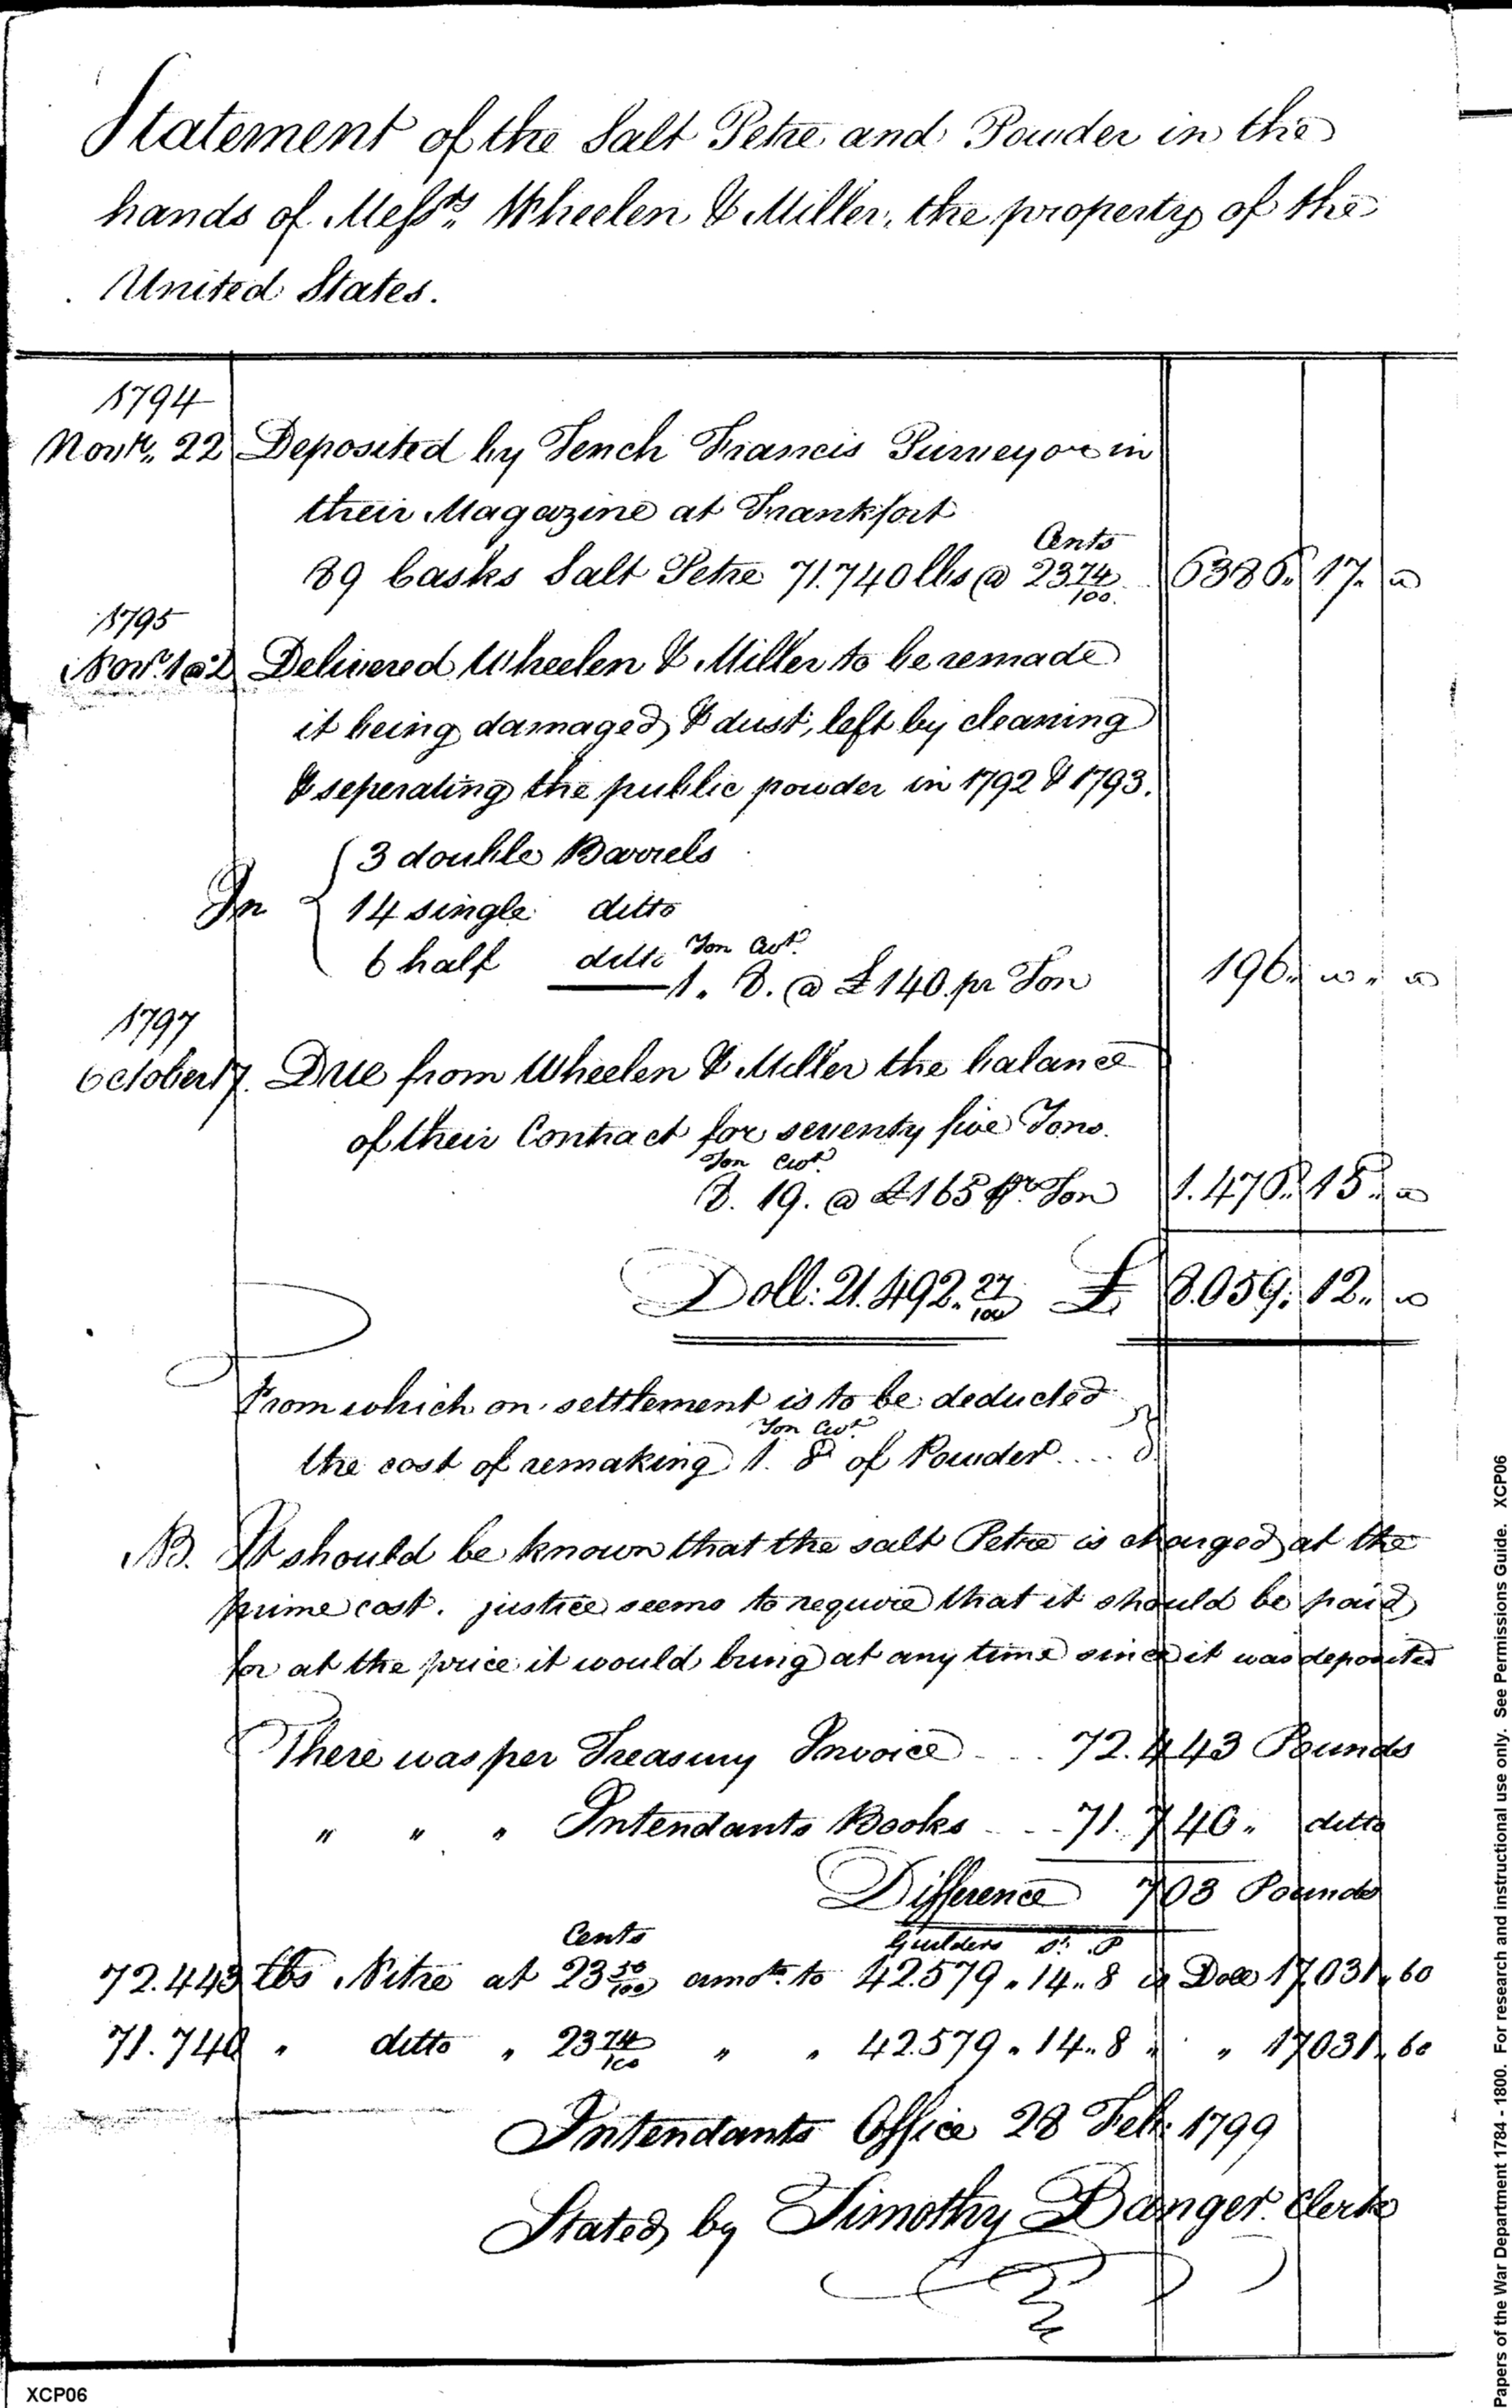 Statement of the Salt Petre and Powder in the
hands of Messrs. Wheelen & Miller, the property of the
United States.
1794
Novr. 22 Deposited by Tench Francis Purveyor in
their Magazine at Frankfort
Cents
89 Casks Salt Petre 71.740 lbs @ 23 74/100 6386. 17. "
1795
Novr. 1@2 Delivered Wheelen & Miller to be remade
it being damaged, & dust, left by cleaning
& seperating the public powder in 1792 & 1793.
3 double Barrels
In 14 single ditto
6 half ditto Ton Cwt.
1. 8. @ £140 pr Ton 196. " "
1797
October 17. Due from Wheelen & Miller the balance
of their Contract for seventy five Tons.
Ton Cwt.
8. 19. @ £165 pr. Ton 1.476. 15. "
Doll: 21.492. 27/100 £ 8.059. 12. "
From which on settlement is to be deducted
Ton Cwt.
the cost of remaking 1. 8 of Powder....
NB. It should be known that the salt Petre is charged at the
prime cost. justice seems to require that it should be paid
for at the price it would bring at any time since it was deposited
There was per Treasury Invoice - . . 72.443 Pounds
" " " Intendants Books - . . 71.740 " ditto
Difference 703 Pounds
Cents Guilders St. P
72.443 lbs Nitre at 23 50/100 amotg. to 42.579 " 14 " 8 is Doll 17.031 " 60
71.740 " ditto " 23 74/100 " " 42.579 " 14 " 8 " " 17031 " 60
Intendants Office 28 Feb: 1799
Stated by Timothy Banger. Clerk
XCP06
Papers of the War Department 1784 - 1800. For research and instructional use only. See Permissions Guide. XCP06